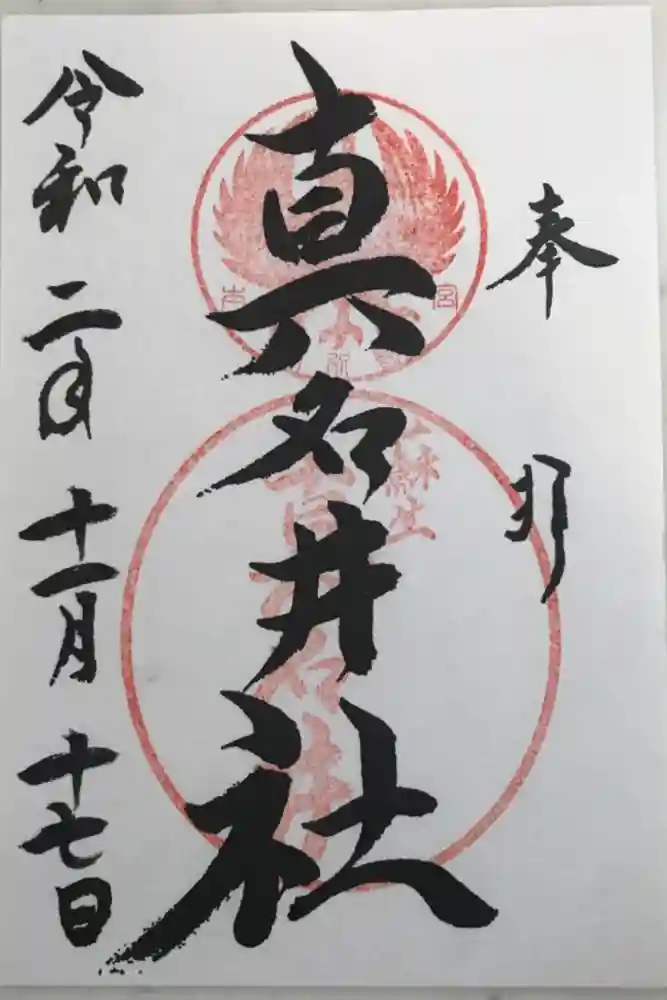 奉拝
真名井社
令和二年十一月十七日
蘇生